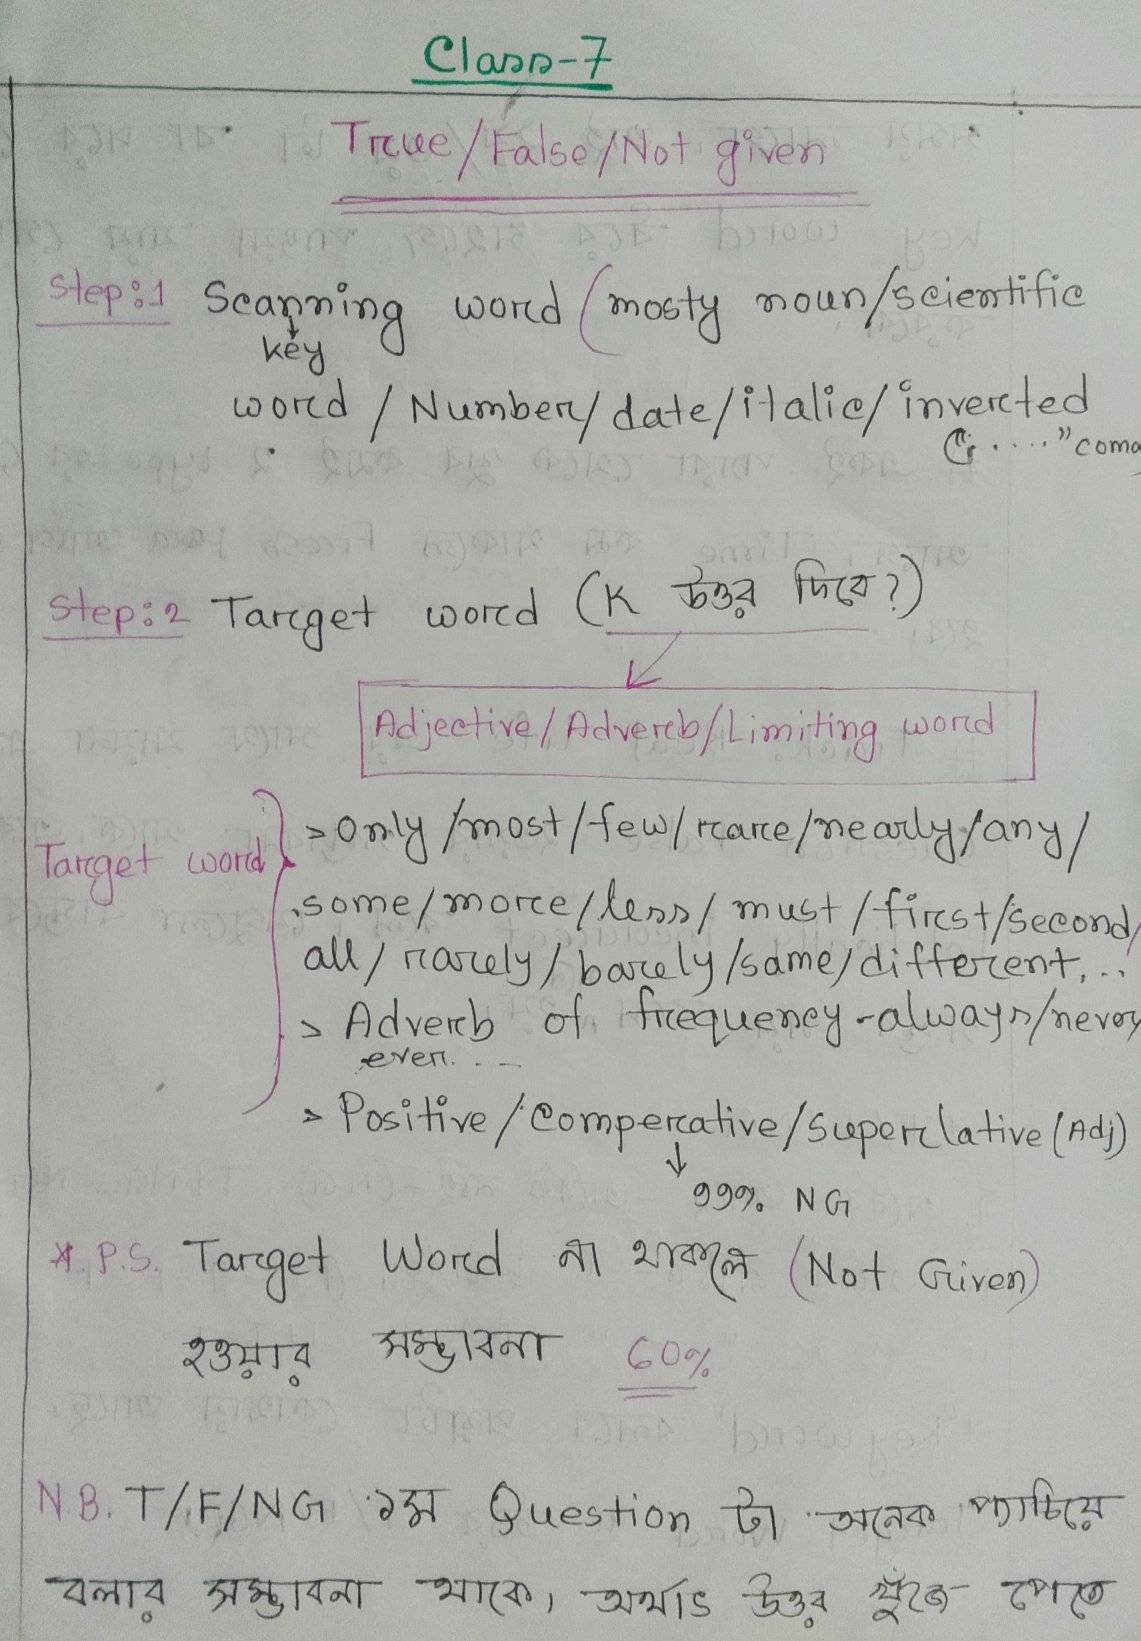 Class-7
True/False/Not given
Step:1 Scanning word (mosty noun/scientific
key
word / Number/date/italic/inverted
"....." coma
Step:2 Target word (K উত্তর দিবে?)
Adjective/Adverb/Limiting word
Target word
> only/most/few/rare/nearly/any/
some/more/less/must/first/second/
all/rarely/barely/same/different,..
> Adverb of frequency-always/never/
ever....
> Positive/Comperative/Superlative (Adj)
99% NG
*.P.S. Target Word না থাকলে (Not Given)
হওয়ার সম্ভাবনা 60%
N.B. T/F/NG ১ম Question টা অনেক প্যাচিয়ে
বলার সম্ভাবনা থাকে, অর্থাৎ উত্তর খুঁজে পেতে